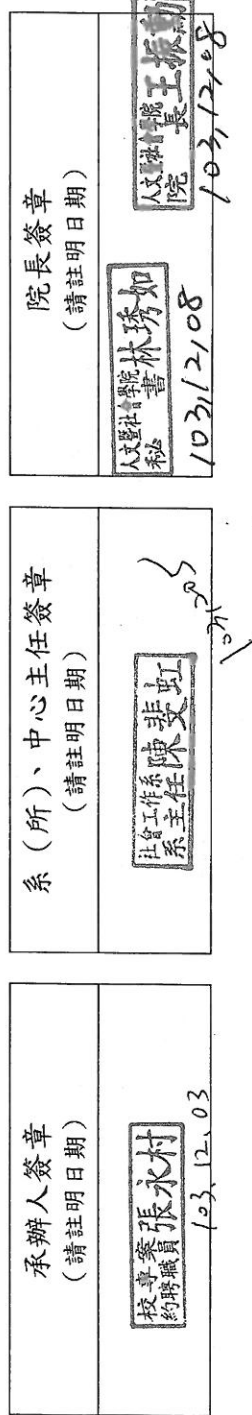 承辦人簽章
(請註明日期)
校專案
約聘職員 張永村
103.12.03
系(所)、中心主任簽章
(請註明日期)
社會工作系
系主任 陳斐虹
院長簽章
(請註明日期)
人文暨社會學院
秘書 林琇如
103,12,08
人文暨社會學院
院長 王振勳
103,12,08